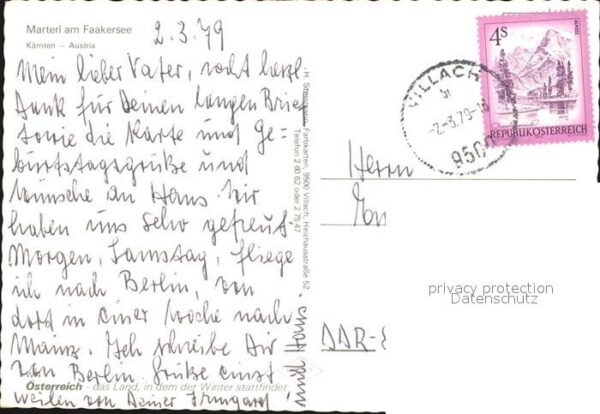 Marterl am Faakersee
Kärnten – Austria
2.3.79
Mein lieber Vater, recht herzl.
Dank für Deinen langen Brief
sowie die Karte und Ge-
burtstagsgrüße und
wünsche an Hans. Wir
haben uns sehr gefreut.
Morgen, Samstag, fliege
ich nach Berlin, von
dort in einer Woche nach
Mainz. Ich schreibe Dir
von Berlin. Grüße einst-
weilen von Deiner Irmgard
und Hans
Österreich - das Land, in dem der Winter stattfindet
Farbkarten, 9500 Villach, Heizhausstraße 52
Telefon 2 60 62 oder 2 75 47
VILLACH
-2.-3.79-16
9500
4S
REPUBLIK ÖSTERREICH
Herrn
DDR-
privacy protection
Datenschutz